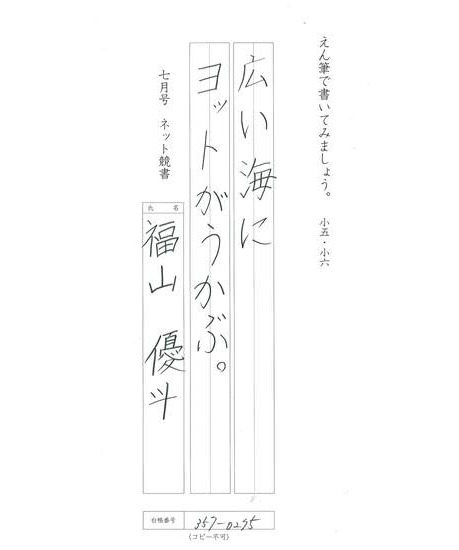 えん筆で書いてみましょう。 小五・小六
広い海に
ヨットがうかぶ。
七月号 ネット競書
氏名
福山 優斗
台帳番号 357-0295
(コピー不可)